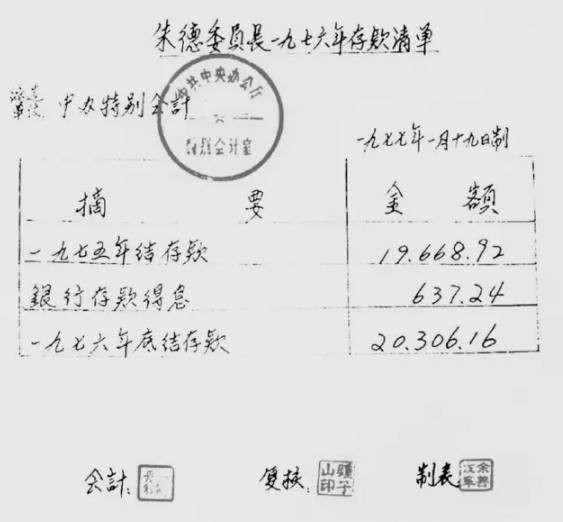 朱德委員長一九七六年存款清单
中办特别会計
中共中央办公厅
特别会计室
一九七七年一月十九日制
摘 要 金 额
一九七五年结存款 19.668.92
銀行存款得息 637.24
一九七六年底结存款 20.306.16
会計: 复核: 制表